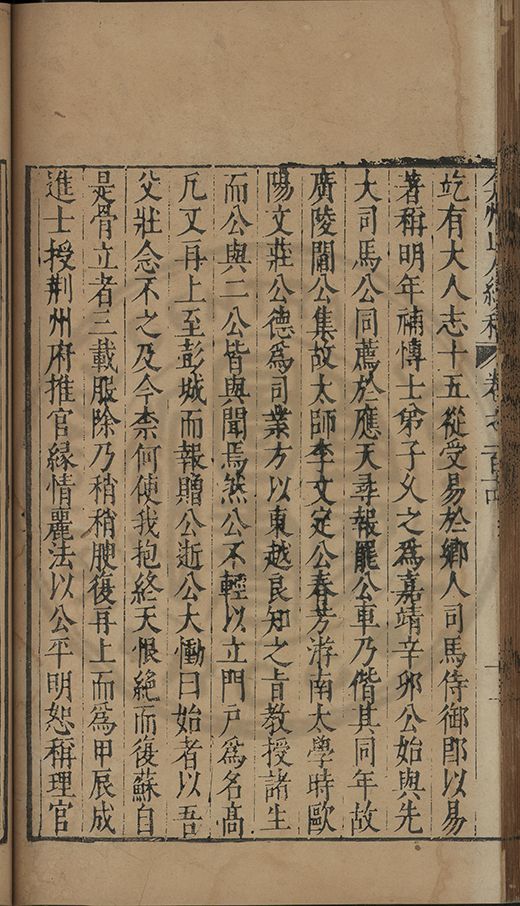 弇州山人續稿 卷之一百
訖有大人志十五從受易於鄉人司馬侍御郎以易
著稱明年補博士弟子久之爲嘉靖辛卯公始與先
大司馬公同薦於應天尋報罷公車乃偕其同年故
廣陵閣公集故太師李文定公春芳游南太學時歐
陽文莊公德爲司業方以東越良知之旨教授諸生
而公與二公皆與聞焉然公不輕以立門戶爲名高
凡又再上至彭城而報贈公逝公大慟曰始者以吾
父壯念不之及今柰何使我抱終天恨絕而復蘇自
是骨立者三載服除乃稍稍腴復再上而爲甲辰成
進士授荆州府推官緣情麗法以公平明恕稱理官